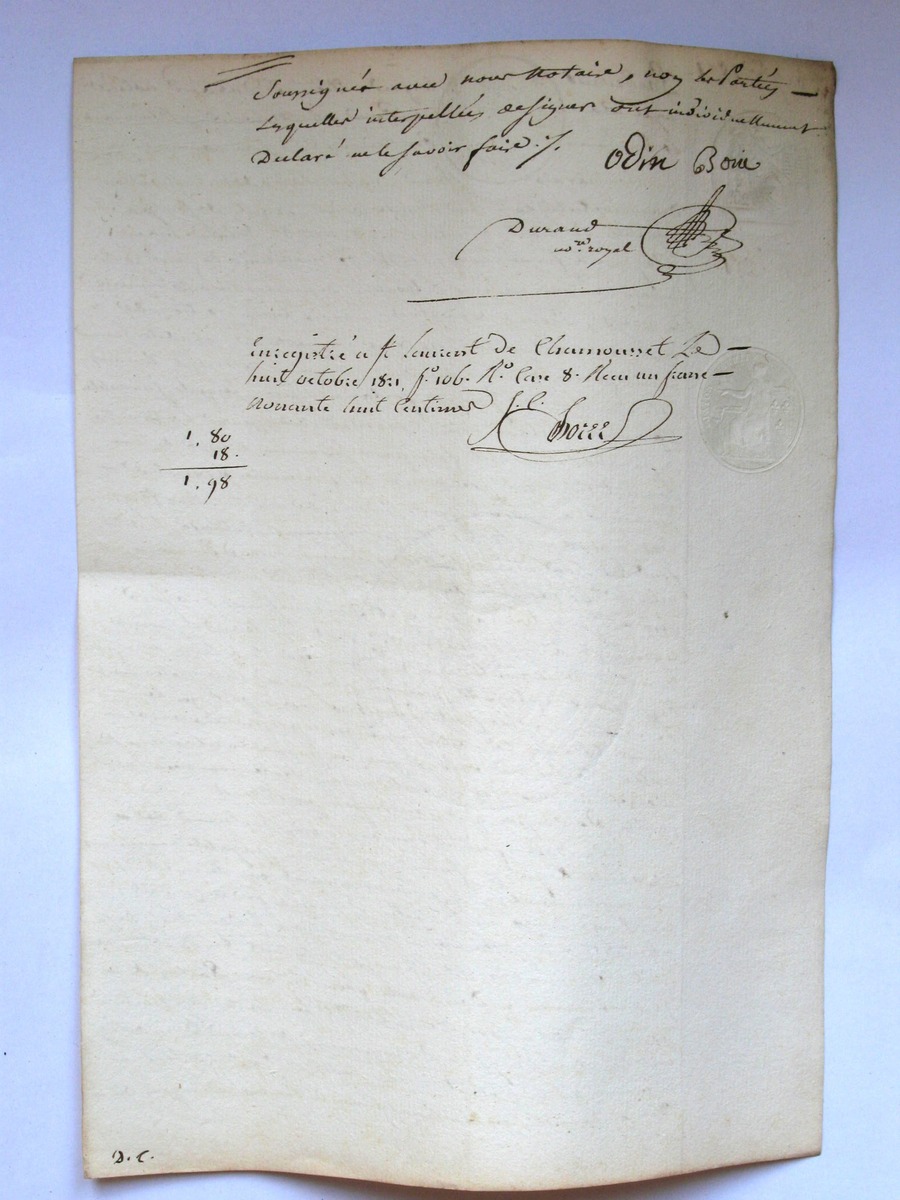 Soussignés avec nous Notaire, non les Parties
Lesquelles interpellées de signer ont individuellement
Declaré ne le savoir faire ./.
Odin Boin
Durand
no.re royal
Enregistré a St Laurent de Chamousset Le
huit octobre 1821, f.o 106. R.o Case 8. Recu un franc
Nonante huit Centimes
1, 80
18.
1, 98
D. C.